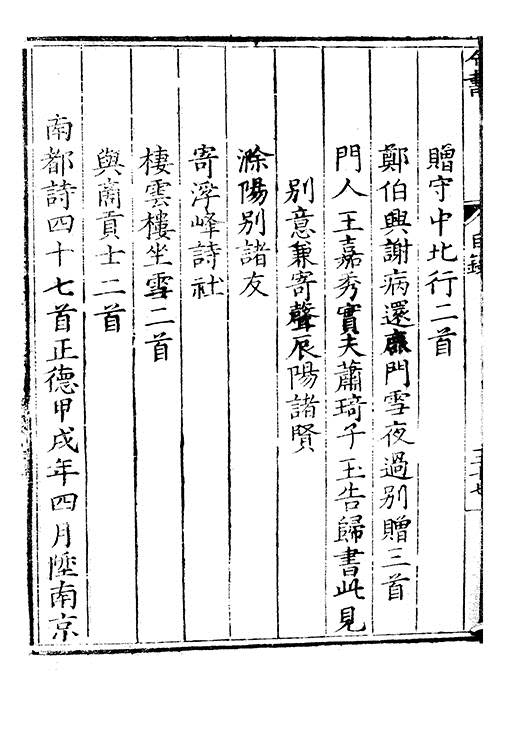 贈守中北行二首
鄭伯興謝病還鹿門雪夜過別贈三首
門人王嘉秀實夫蕭琦子玉告歸書此見
別意兼寄聲辰陽諸賢
滁陽別諸友
寄浮峰詩社
棲雲樓坐雪二首
與商貢士二首
南都詩四十七首正德甲戌年四月陞南京